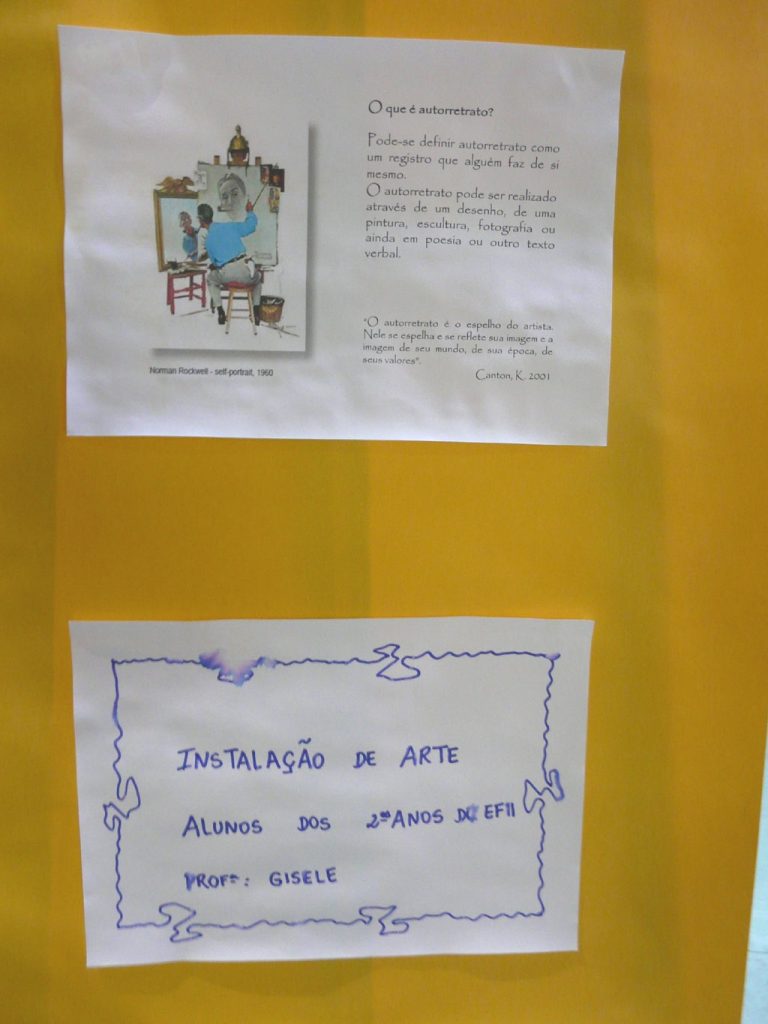 O que é autorretrato?
Pode-se definir autorretrato como
um registro que alguém faz de si
mesmo.
O autorretrato pode ser realizado
através de um desenho, de uma
pintura, escultura, fotografia ou
ainda em poesia ou outro texto
verbal.
"O autorretrato é o espelho do artista.
Nele se espelha e se reflete sua imagem e a
imagem de seu mundo, de sua época, de
seus valores".
Canton, K. 2001
Norman Rockwell - self-portrait, 1960
INSTALAÇÃO DE ARTE
ALUNOS DOS 2ºs ANOS DO EFII
PROFª: GISELE